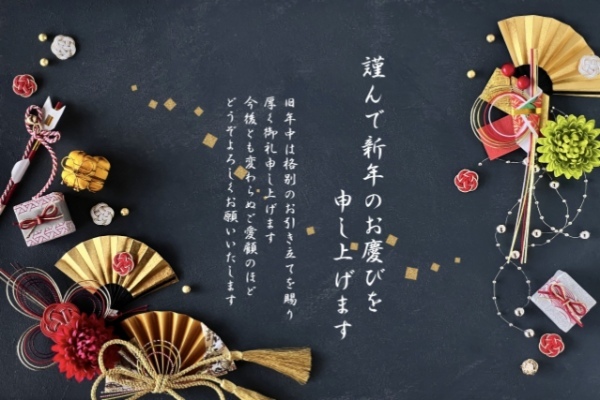 謹んで新年のお慶びを
申し上げます
旧年中は格別のお引き立てを賜り
厚く御礼申し上げます
今後とも変わらぬご愛顧のほど
どうぞよろしくお願いいたします